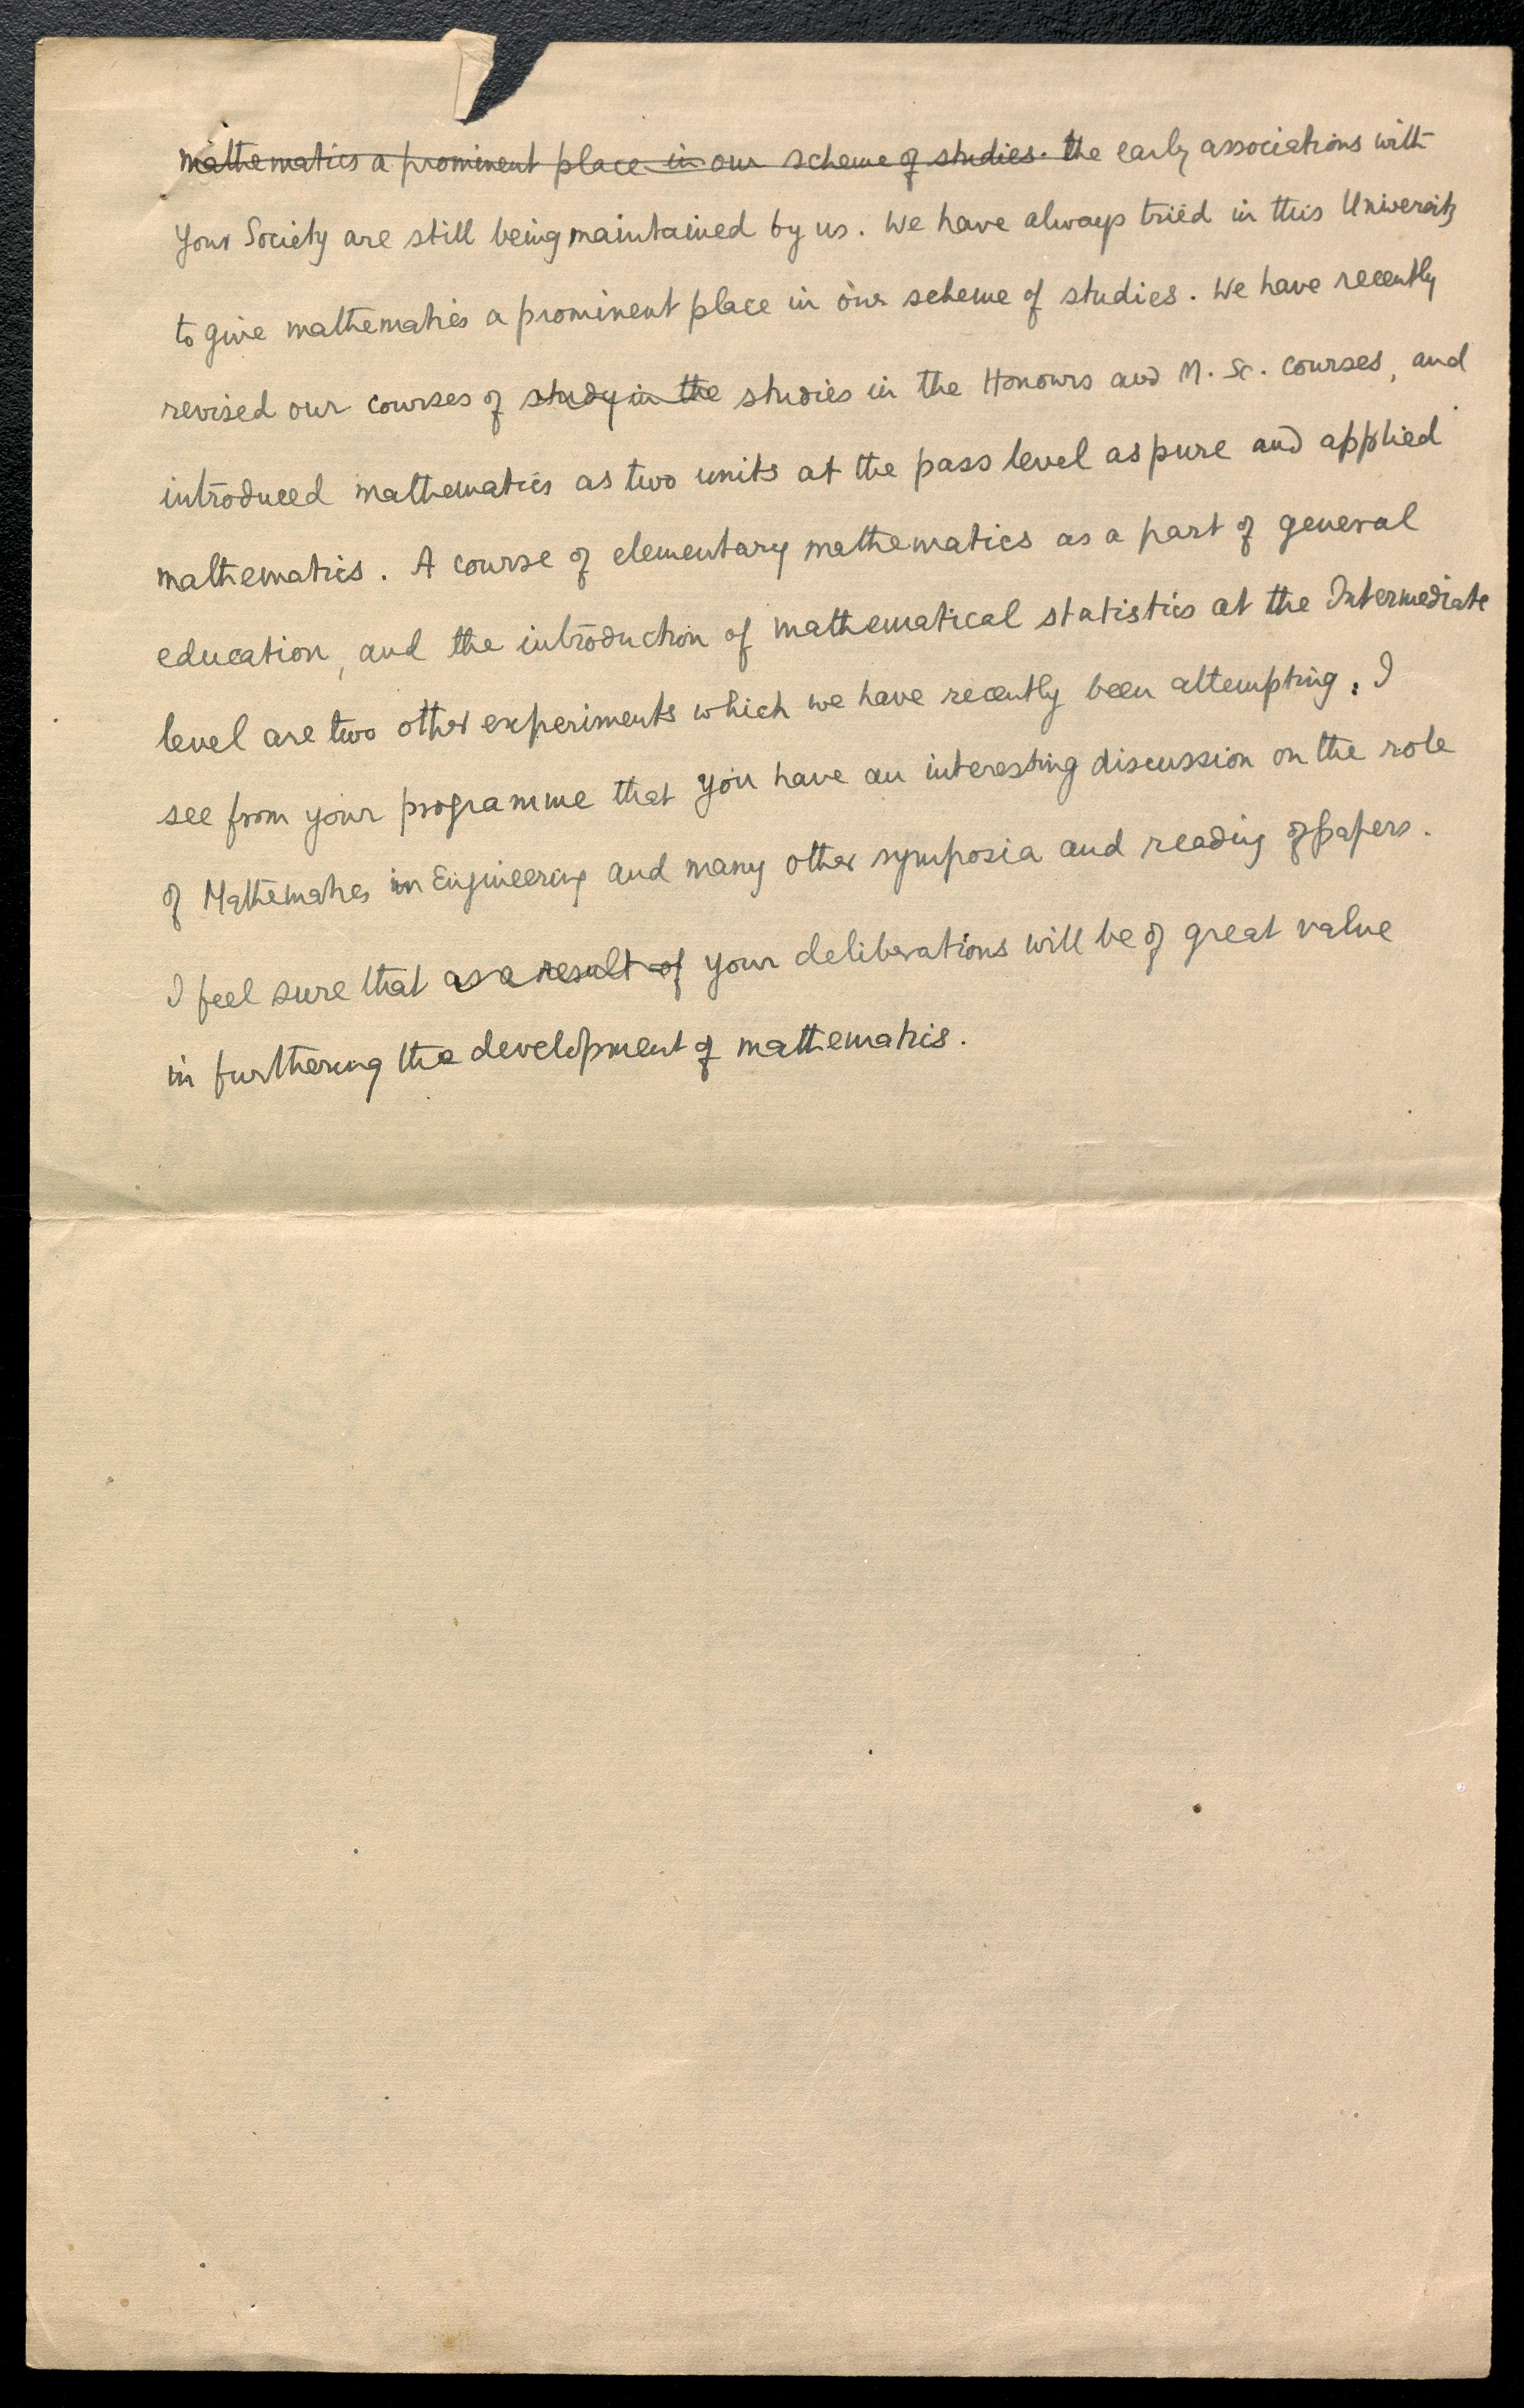 mathematics a prominent place in our scheme of studies. the early associations with
your Society are still being maintained by us. We have always tried in this University
to give mathematics a prominent place in our scheme of studies. We have recently
revised our courses of study in the studies in the Honours and M. Sc. courses, and
introduced mathematics as two units at the pass level as pure and applied
mathematics. A course of elementary mathematics as a part of general
education, and the introduction of mathematical statistics at the Intermediate
level are two other experiments which we have recently been attempting. I
see from your programme that you have an interesting discussion on the role
of Mathematics in Engineering and many other symposia and reading of papers.
I feel sure that as a result of your deliberations will be of great value
in furthering the development of mathematics.